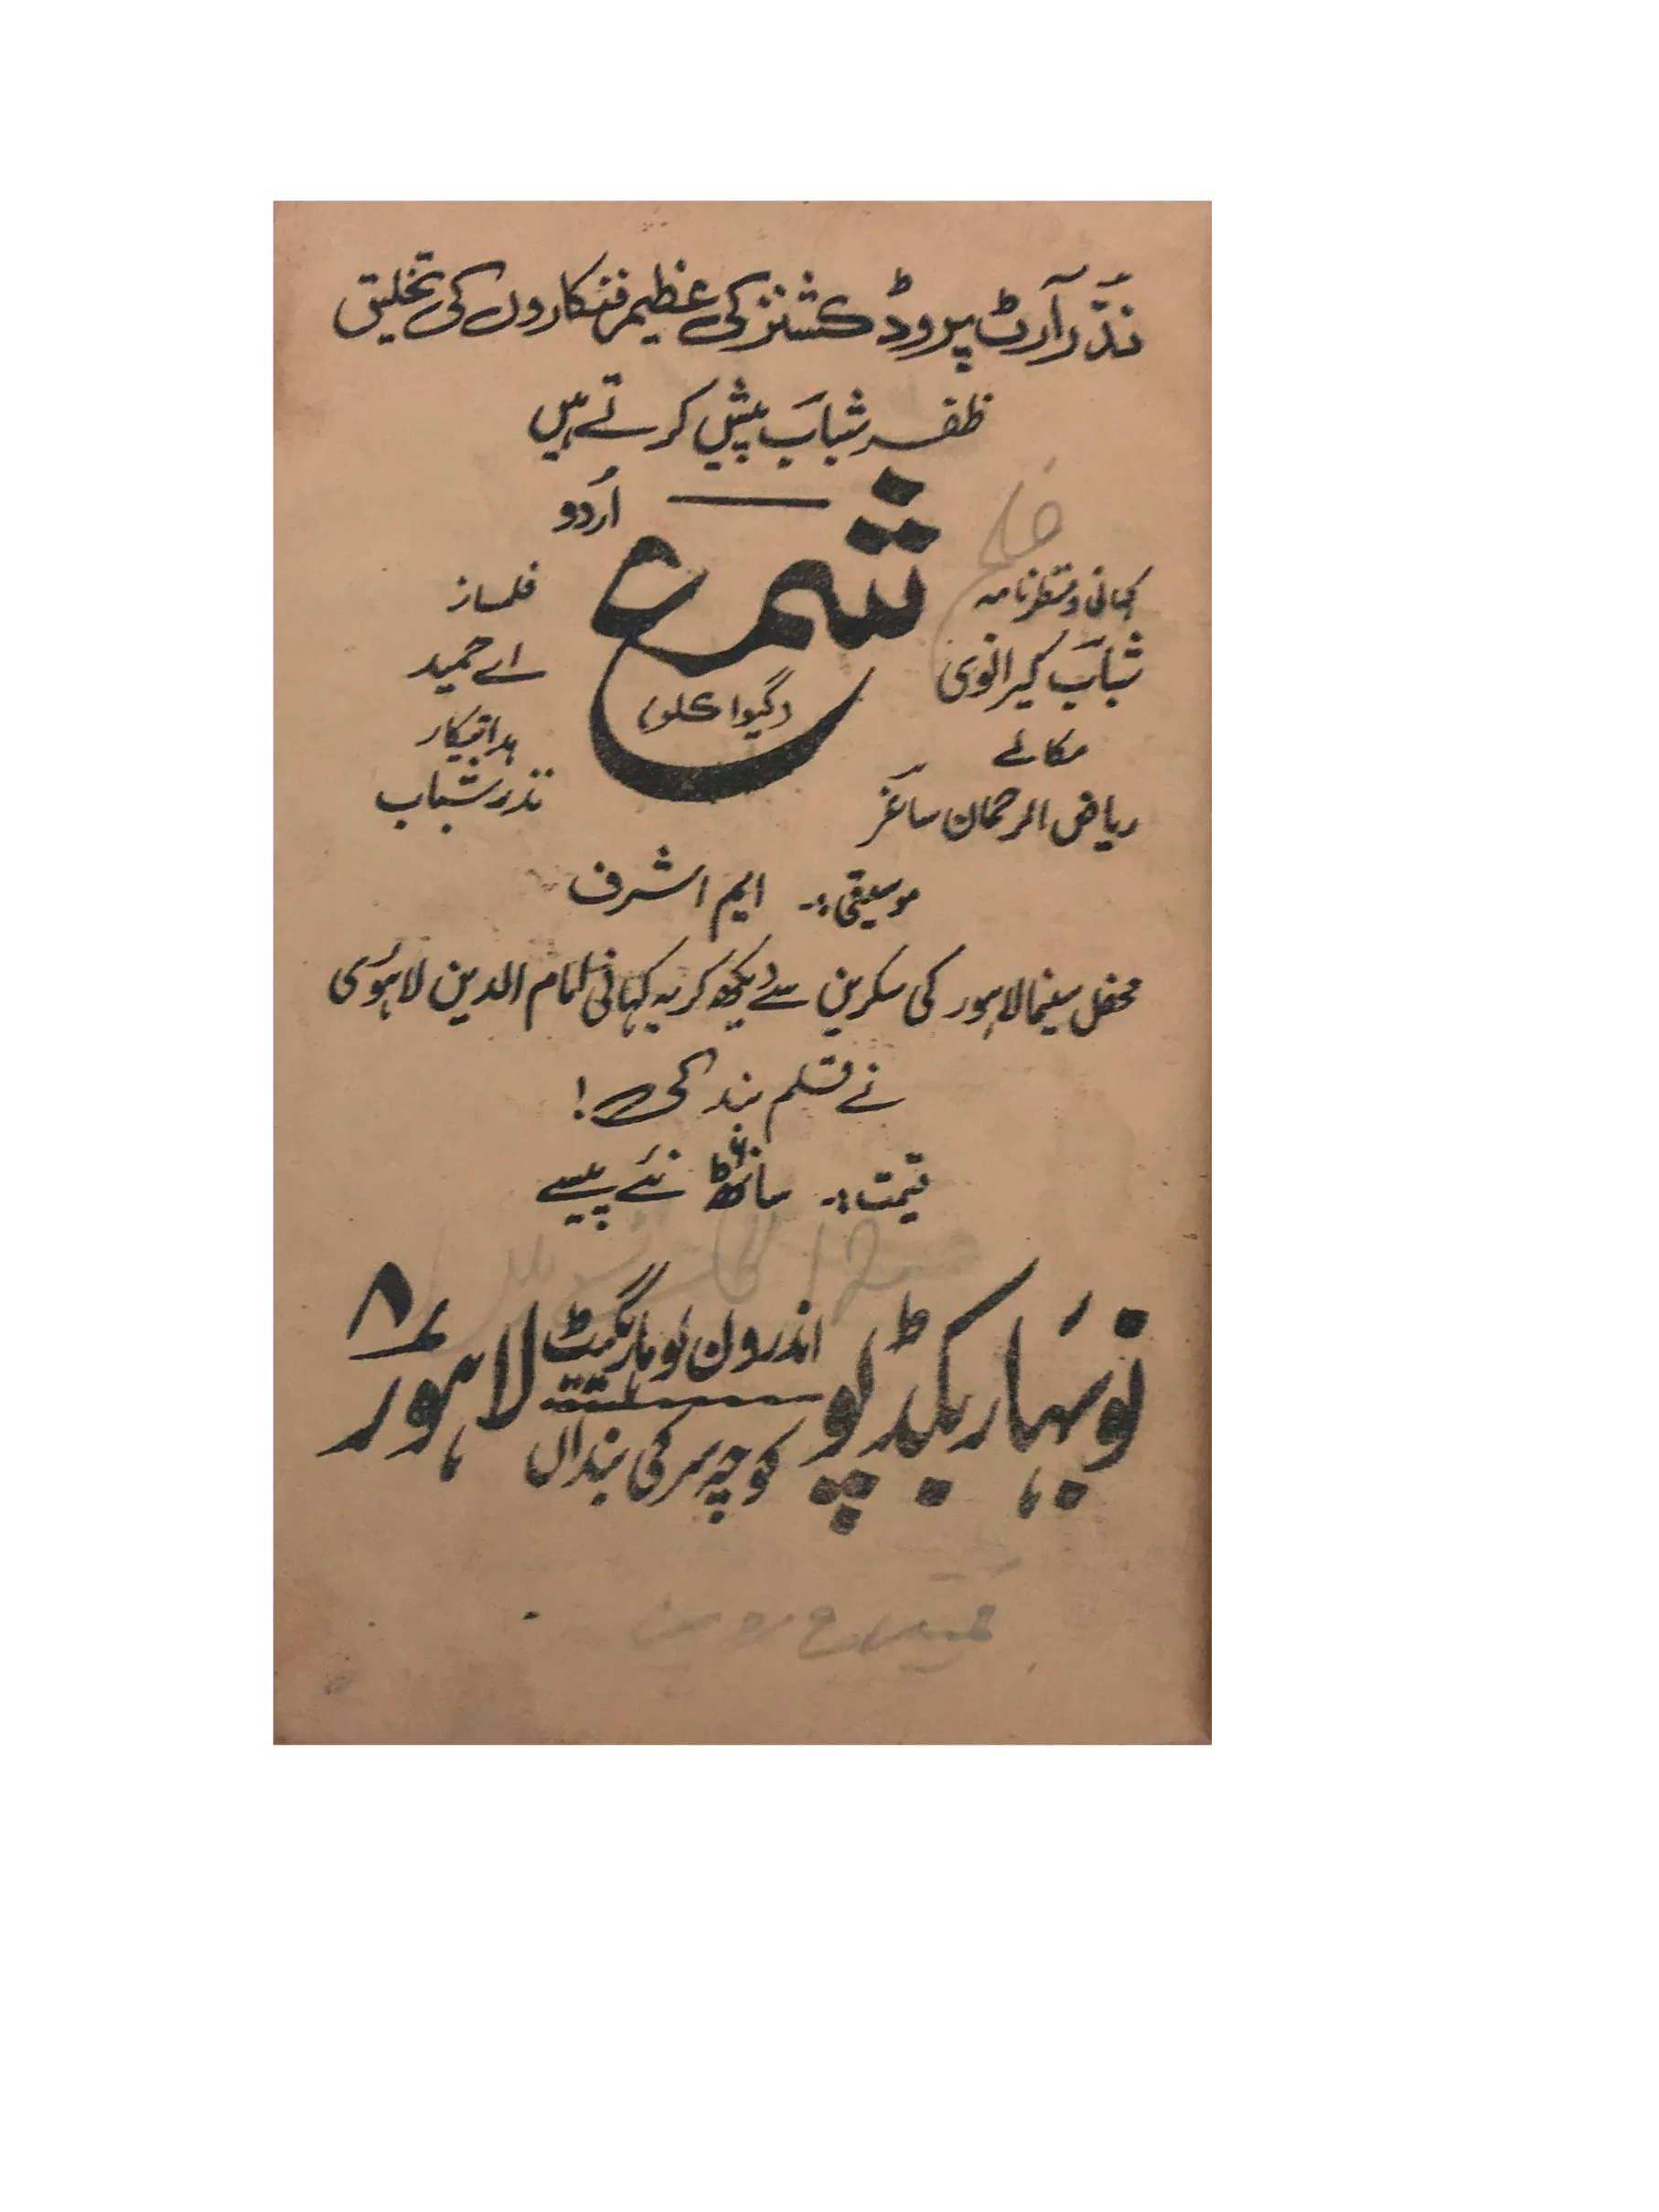 نذر آرٹ پروڈکشنز کی عظیم فنکاروں کی تخلیق
ظفر شباب پیش کرتے ہیں
اُردو
شمع
(گیوا کلر)
کہانی و منظرنامہ
فلمساز
شباب کیرانوی
اے حمید
مکالمے
ہدایتکار
ریاض الرحمان ساغر
نذر شباب
موسیقی:- ایم اشرف
محفل سینما لاہور کی سکرین سے دیکھ کر یہ کہانی امام الدین لاہوری
نے قلم بند کی!
قیمت:- ساٹھ نئے پیسے
نو بہار بکڈپو اندرون لوہاری گیٹ لاہور ۸
کوچہ سرکی بنداں